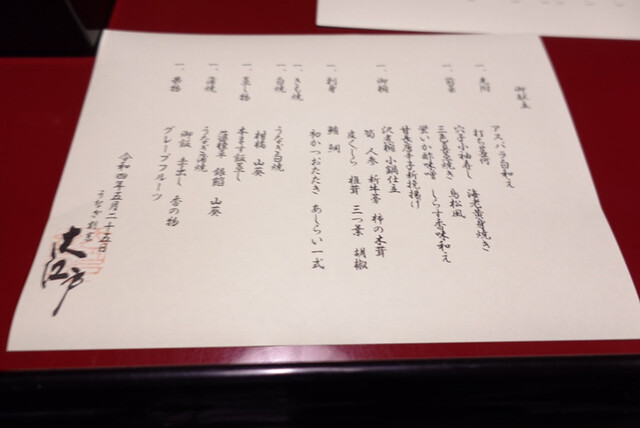 御献立
一、先附
アスパラ白和え
一、前菜
打ち茗荷 海老黄身焼き
穴子小袖寿し 鳥松風
三色長芋焼き
蛍いか酢味噌 しらす香味和え
甘長唐辛子新挽揚げ
一、御椀
沢煮椀 小鍋仕立
筍 人参 新牛蒡 柿の木茸
皮くじら 椎茸 三つ葉 胡椒
一、刺身
鯛
初かつおたたき あしらい一式
一、きも焼
一、白焼
うなぎ白焼
柑橘 山葵
一、蒸し物
本ます飯蒸し
銀餡 山葵
一、蒲焼
うなぎ蒲焼
御飯 香の物
一、果物
グレープフルーツ
令和四年五月二十五日
うなぎ
大江戸